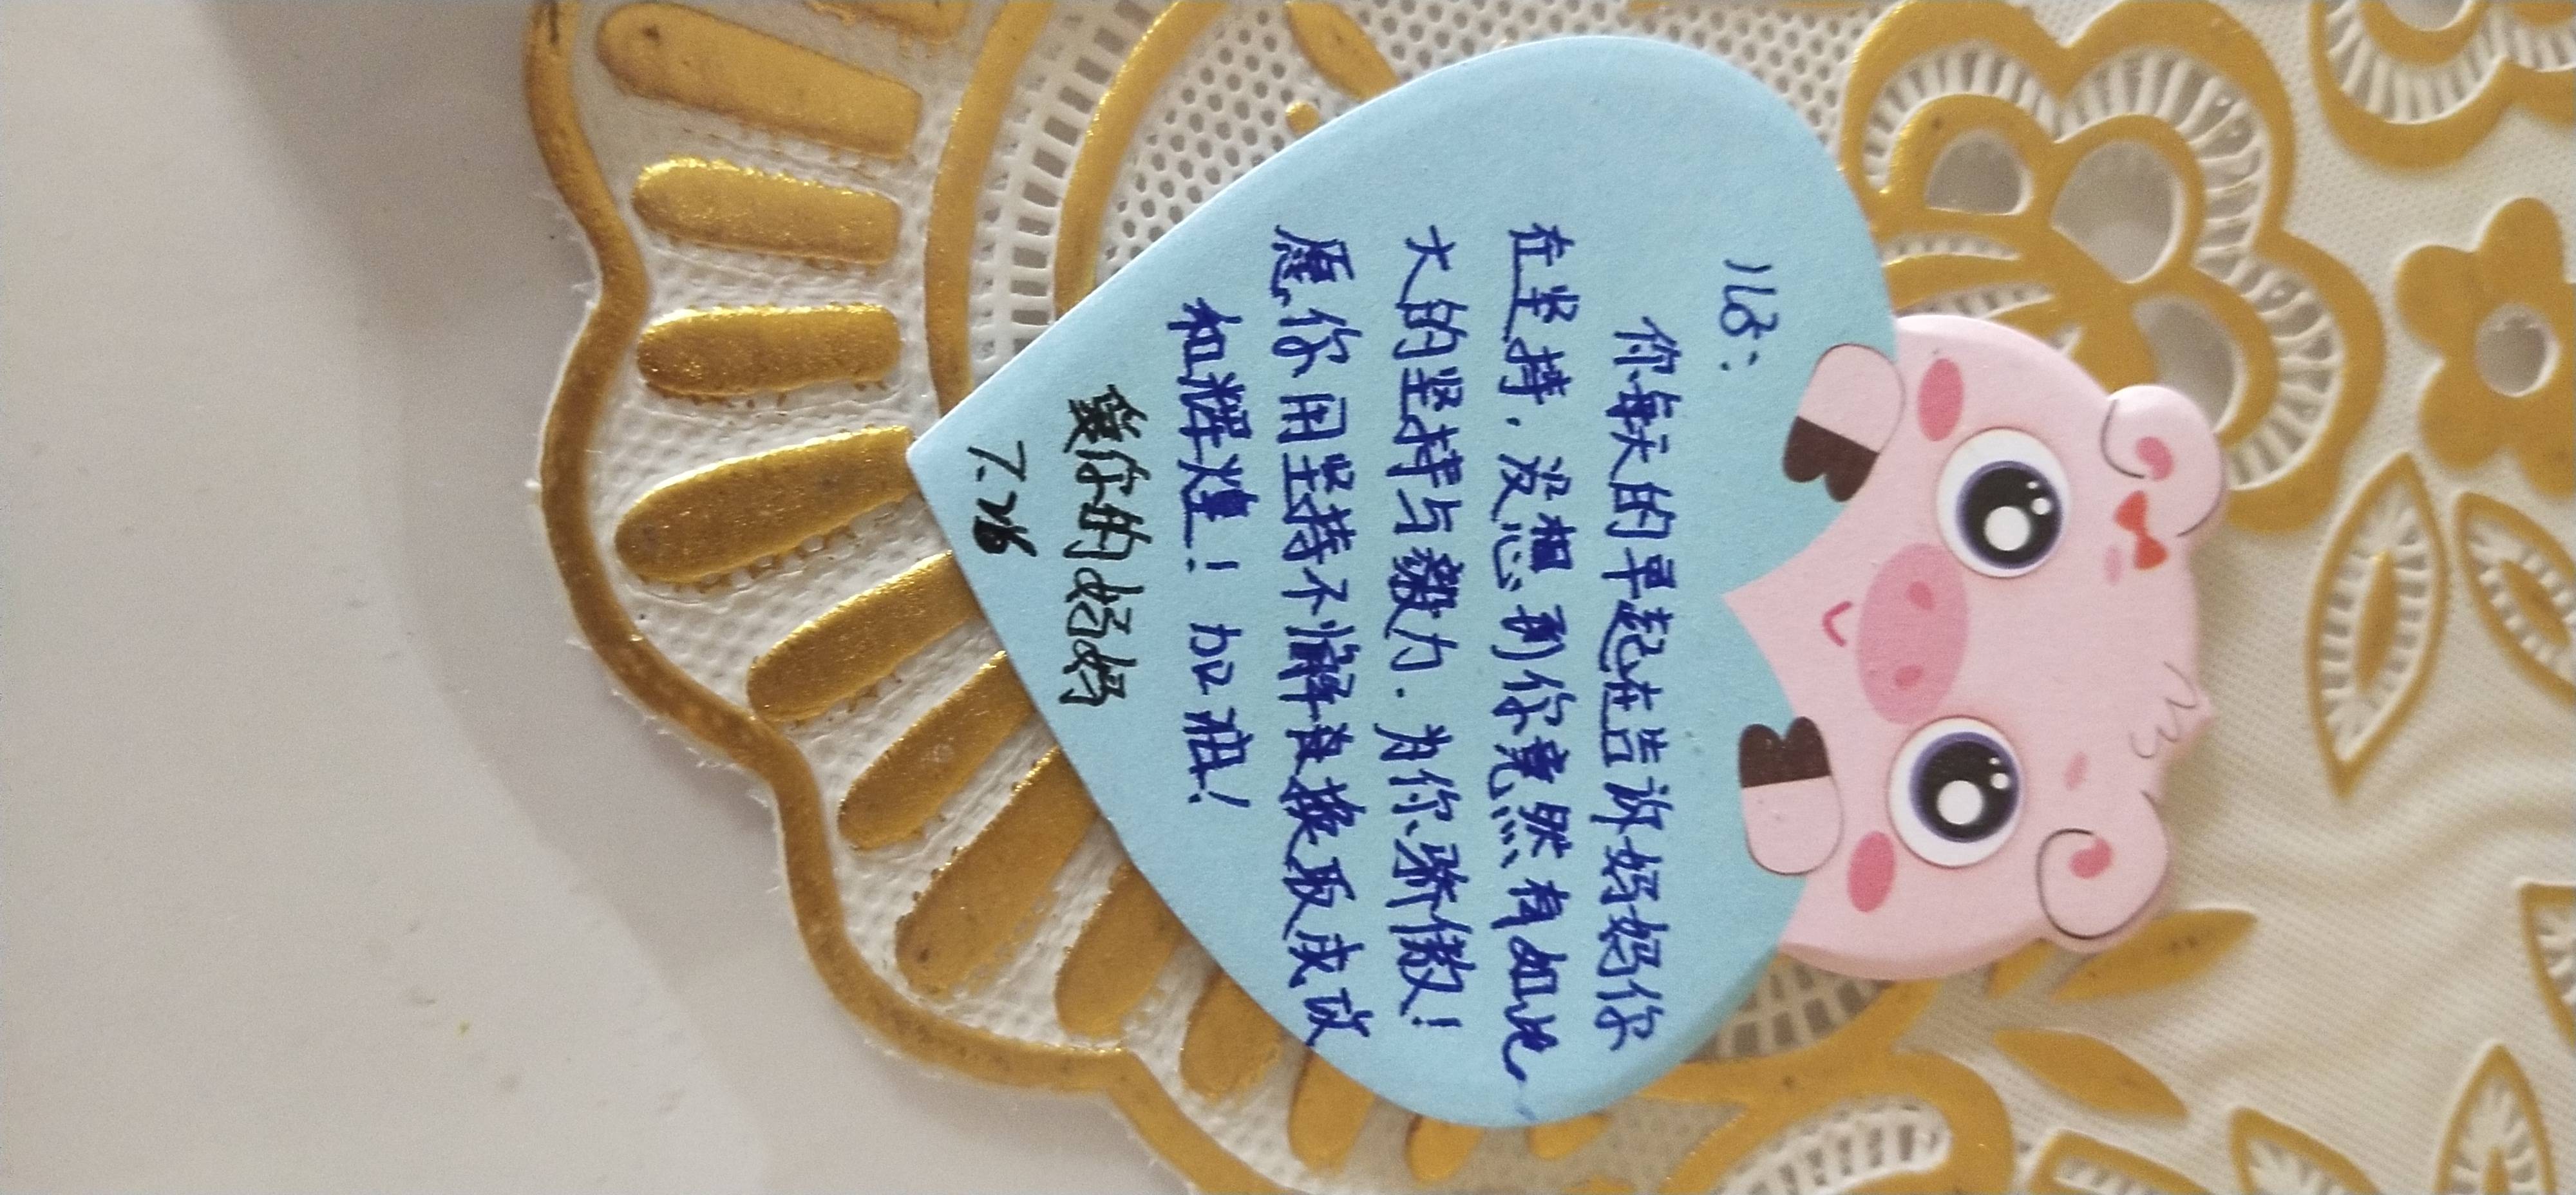 儿子：
你每天的早起在告诉妈妈你
在坚持，没想到你竟然有如此
大的坚持与毅力．为你骄傲！
愿你用坚持不懈最换取成试
和辉煌！加油！
爱你的妈妈
7.26